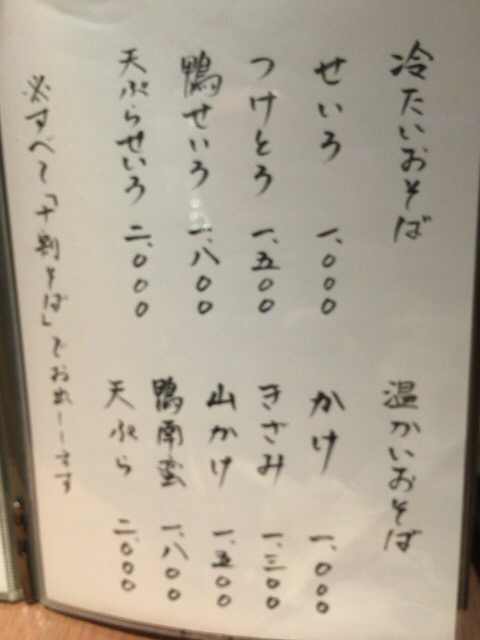 冷たいおそば
せいろ 一、〇〇〇
つけとろ 一、五〇〇
鴨せいろ 一、八〇〇
天ぷらせいろ 二、〇〇〇
温かいおそば
かけ 一、〇〇〇
きざみ 一、三〇〇
山かけ 一、五〇〇
鴨南蛮 一、八〇〇
天ぷら 二、〇〇〇
※すべて「十割そば」でお出しします